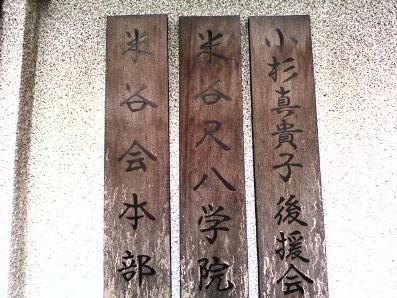 小杉真貴子後援会
米谷尺八学院
米谷会本部